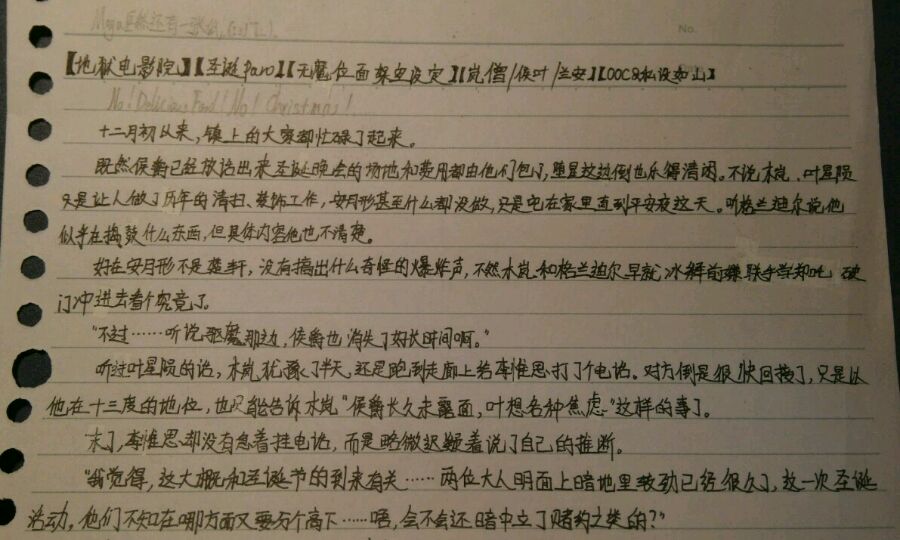 Moya居然还有一张
No.
【地狱电影院】【圣诞Paro】【无魔位面架空设定】【岚僧/侯叶/兰安】【OOC&私设如山】
No! Delicious Food! No! Christmas!
十二月初以来，镇上的大家都忙碌了起来。
既然侯爵已经放话出来圣诞晚会的场地和费用都由他们包了，堕星这边倒也乐得清闲。不说木岚、叶星陨
只是让人做了历年的清扫、装饰工作，安月形甚至什么都没做，只是宅在家里直到平安夜这天。听格兰迪尔说他
似乎在捣鼓什么东西，但具体内容他也不清楚。
好在安月形不是楚轩，没有搞出什么奇怪的爆炸声，不然木岚和格兰迪尔早就冰解前嫌联手 破
门冲进去看个究竟了。
“不过……听说恶魔那边，侯爵也消失了好长时间啊。”
听过叶星陨的话，木岚犹豫了半天，还是跑到走廊上给李惟思打了个电话。对方倒是很快回接了，只是以
他在十三度的地位，也只能告诉木岚“侯爵长久未露面，叶想各种焦虑”这样的事了。
末了，李惟思却没有急着挂电话，而是略微迟疑着说了自己的推断。
“我觉得，这大概和圣诞节的到来有关……两位大人明面上暗地里较劲已经很久了，这一次圣诞
活动，他们不知在哪方面又要分个高下……唔，会不会还暗中立了赌约之类的？”